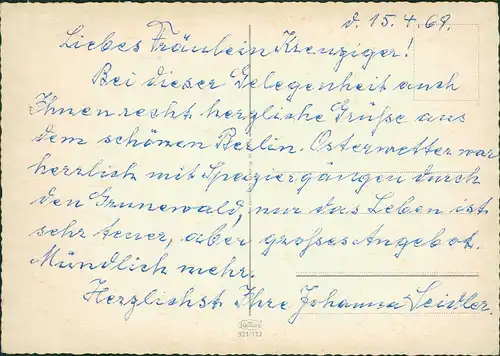 d. 15.4.69.
Liebes Fräulein Kreuziger!
Bei dieser Gelegenheit auch
Ihnen recht herzliche Grüße aus
dem schönen Berlin. Osterwetter war
herrlich mit Spaziergängen durch
den Grunewald, nur das Leben ist
sehr teuer, aber großes Angebot.
Mündlich mehr.
Herzlichst Ihre Johanna Seidler.
921/112